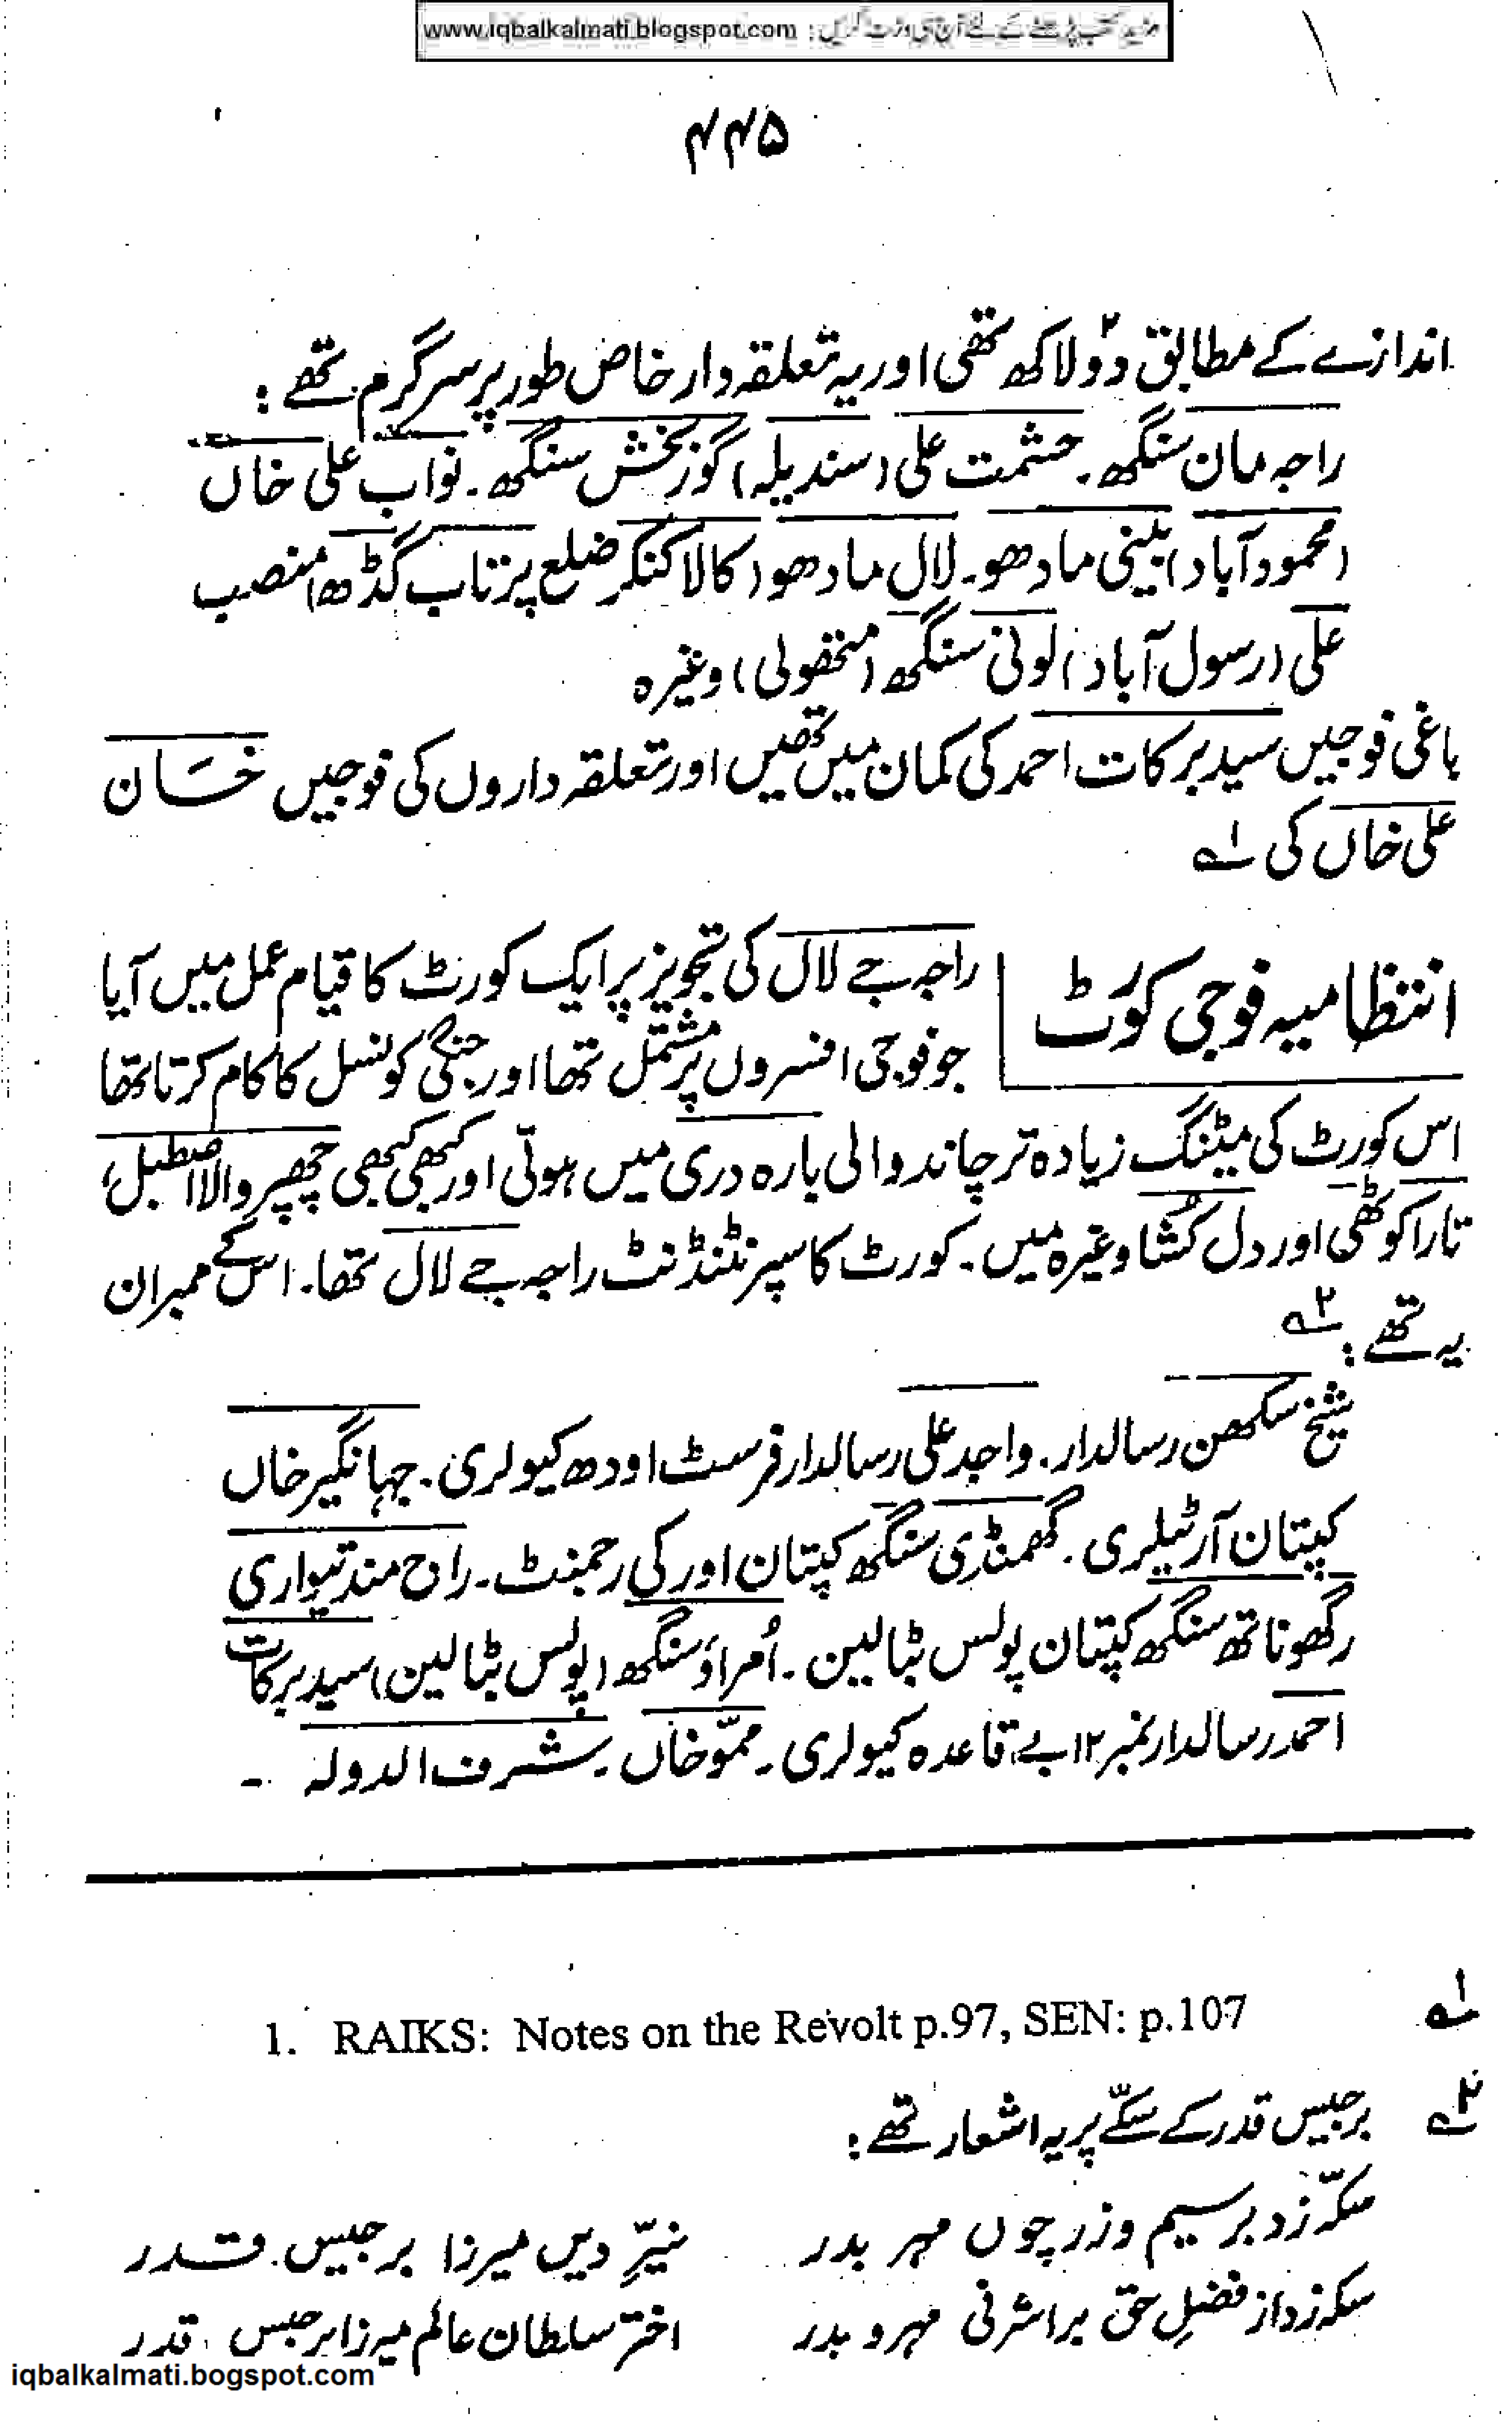 مزید کتب پڑھنے کے لئے آج ہی وزٹ کریں : www.iqbalkalmati.blogspot.com
۴۴۵
اندازے کے مطابق دو۲ لاکھ تھی اور یہ تعلقہ دار خاص طور پر سرگرم تھے :
راجہ مان سنگھ۔ حشمت علی (سندیلہ) گوربخش سنگھ۔ نواب علی خاں
(محمودآباد) بینی مادھو۔ لال مادھو (کالاکنکر ضلع پرتاب گڈھ) منصب
علی (رسول آباد) لونی سنگھ (متھولی) وغیرہ
باغی فوجیں سید برکات احمد کی کمان میں تھیں اور تعلقہ داروں کی فوجیں خان
علی خاں کی ۱؎
انتظامیہ فوجی کورٹ
راجہ جے لال کی تجویز پر ایک کورٹ کا قیام عمل میں آیا
جو فوجی افسروں پر مشتمل تھا اور جنگی کونسل کا کام کرتا تھا
اس کورٹ کی میٹنگ زیادہ تر چاند والی بارہ دری میں ہوتی اور کبھی کبھی چھپر والا اصطبل،
تارا کوٹھی اور دل کُشا وغیرہ میں۔ کورٹ کا سپرنٹنڈنٹ راجہ جے لال تھا۔ اس کے ممبران
یہ تھے : ۲؎
شیخ سکھن رسالدار۔ واجد علی رسالدار فرسٹ اودھ کیولری۔ جہانگیر خاں
کپتان آرٹیلری۔ گھمنڈی سنگھ کپتان اور کی رجمنٹ۔ راج مند تیواری
رگھوناتھ سنگھ کپتان پولس بٹالین۔ اُمراؤ سنگھ (پولس بٹالین) سید برکات
احمد رسالدار نمبر ۱۲ بے قاعدہ کیولری۔ ممّو خاں۔ شرف الدولہ ۔
۱؎ 1. RAIKS: Notes on the Revolt p.97, SEN: p.107
۲؎ برجیس قدر کے سکّے پر یہ اشعار تھے :
سکّہ زد بر سیم و زر چوں مہر بدر نیّرِ دیں میرزا برجیس قدر
سکہ زد از فضلِ حق بر اشرفی مہر و بدر اختر سلطان عالم میرزا برجیس قدر
iqbalkalmati.bogspot.com